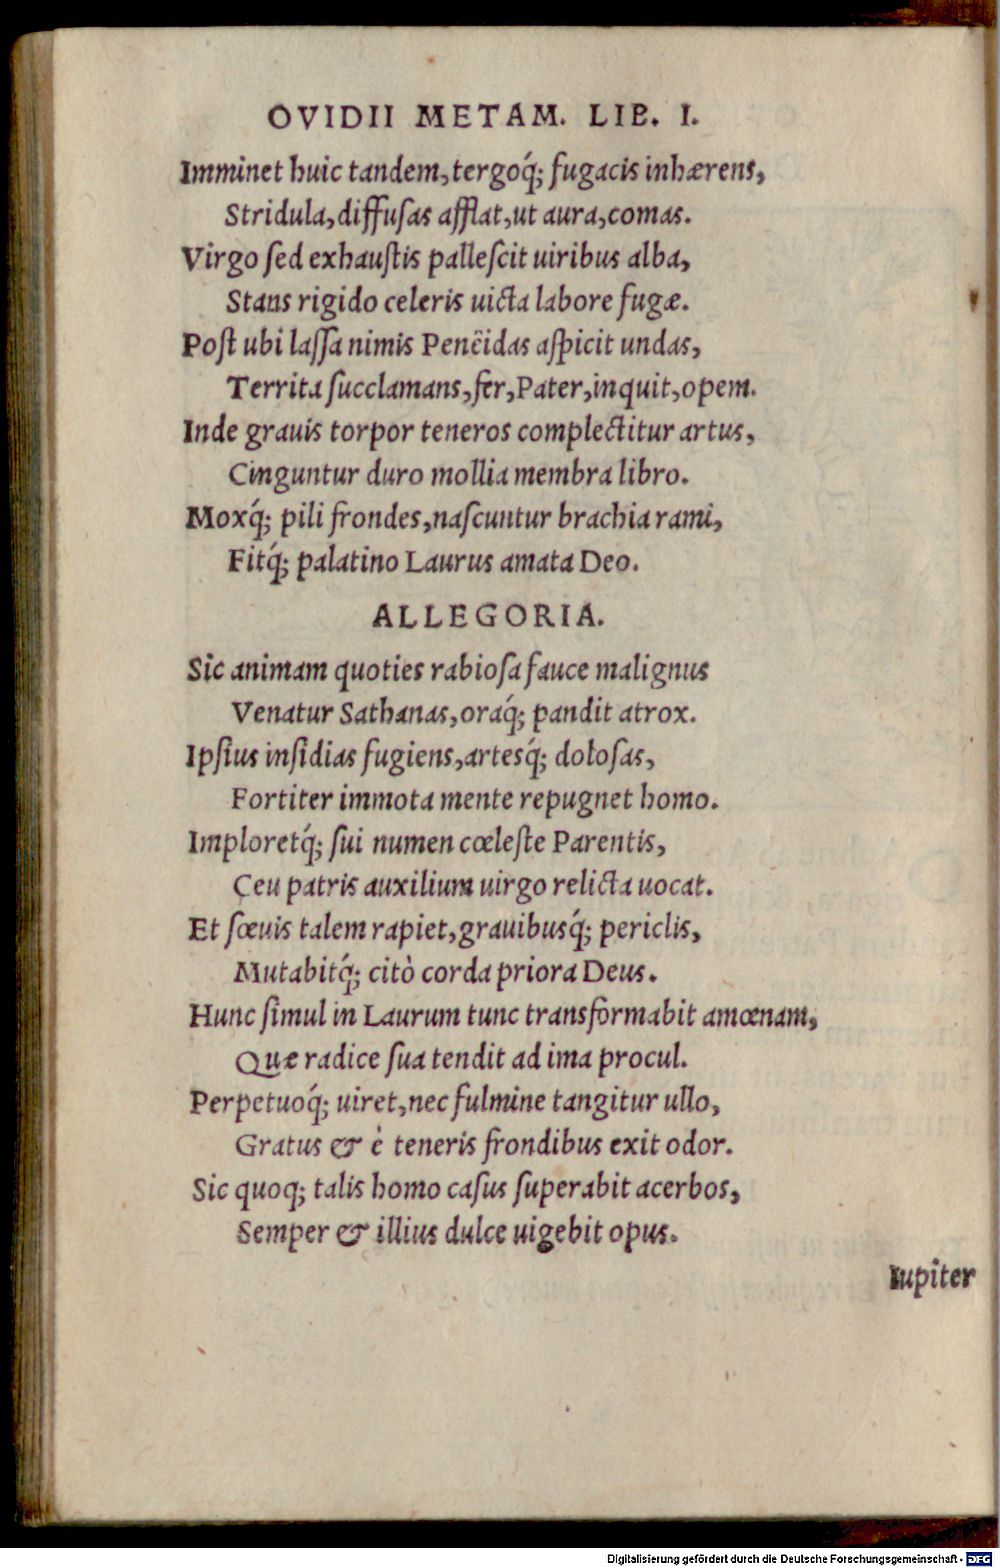 OVIDII METAM. LIB. I.
Imminet huic tandem, tergoq́; fugacis inhærens,
Stridula, diffuſas afflat, ut aura, comas.
Virgo ſed exhauſtis palleſcit uiribus alba,
Stans rigido celeris uicta labore fugæ.
Poſt ubi laſſa nimis Penëidas aſpicit undas,
Territa ſucclamans, fer, Pater, inquit, opem.
Inde grauis torpor teneros complectitur artus,
Cinguntur duro mollia membra libro.
Moxq́; pili frondes, naſcuntur brachia rami,
Fitq́; palatino Laurus amata Deo.
ALLEGORIA.
Sic animam quoties rabioſa fauce malignus
Venatur Sathanas, oraq́; pandit atrox.
Ipſius inſidias fugiens, artesq́; doloſas,
Fortiter immota mente repugnet homo.
Imploretq́; ſui numen cœleſte Parentis,
Ceu patris auxilium uirgo relicta uocat.
Et ſœuis talem rapiet, grauibusq́; periclis,
Mutabitq́; citò corda priora Deus.
Hunc ſimul in Laurum tunc transformabit amœnam,
Quæ radice ſua tendit ad ima procul.
Perpetuoq́; uiret, nec fulmine tangitur ullo,
Gratus & è teneris frondibus exit odor.
Sic quoq; talis homo caſus ſuperabit acerbos,
Semper & illius dulce uigebit opus.
Iupiter
Digitalisierung gefördert durch die Deutsche Forschungsgemeinschaft - DFG